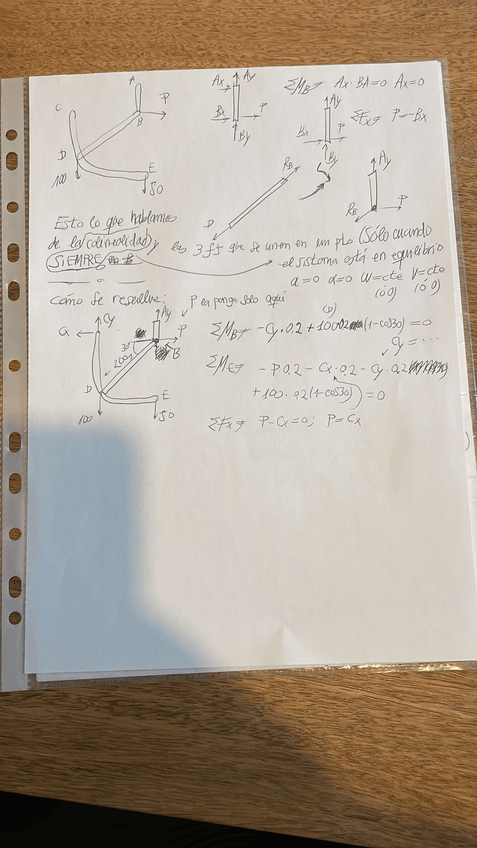 A
C
P
B
D
E
100
50
Ax
Ay
Bx
P
By
ΣM_B → Ax·BA=0 Ax=0
Ay
Bx
P
By
ΣFx → P - Bx
R_B
D
Ay
R_B
P
Esto lo que hablamos
de la (colinealidad), las 3 fs que se unen en un pto (Sólo cuando
SIEMPRE
el sistema está en equilibrio
a=0 α=0 ω=cte v=cte
(ó 0) (ó 0)
Cómo se resuelve: P la pongo solo aquí
Cx
Cy
Ay
P
B
D
E
100
50
ΣM_B → -Cy·0.2 + 100 02 (1-cos30) = 0
Cy = ...
ΣM_E → -P·0.2 - Cx·0.2 - Cy·0.2
+ 100·0.2(1-cos30) = 0
ΣFx → P-Cx=0; P=Cx